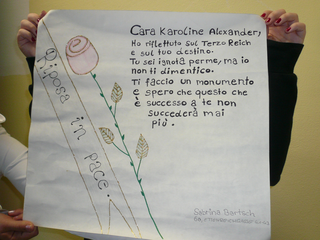 Cara Karoline Alexander,
Ho riflettuto sul Terzo Reich
e sul tuo destino.
Tu sei ignota per me, ma io
non ti dimentico.
Ti faccio un monumento
e spero che questo che
è successo a te non
succederà mai
più.
Riposa in pace.
Sabrina Bartsch